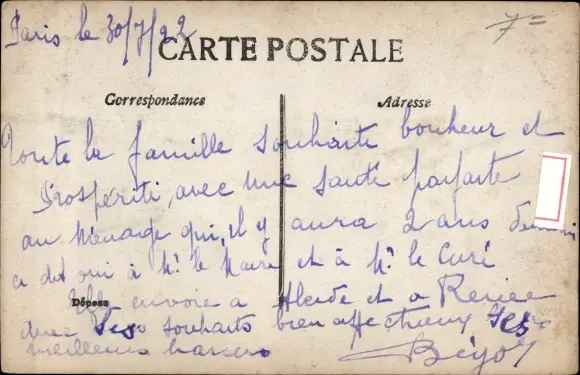 Paris le 30/7/22
7=
CARTE POSTALE
Correspondance
Adresse
Toute la famille souhaite bonheur et
Prospérité, avec une santé parfaite
au Ménage qui, il y aura 2 ans demain
a dit oui à Mr. le Maire et à Mr. le Curé
Elle envoie a et a Renée
Dépose
avec ses souhaits bien affectueux ses
meilleurs baisers